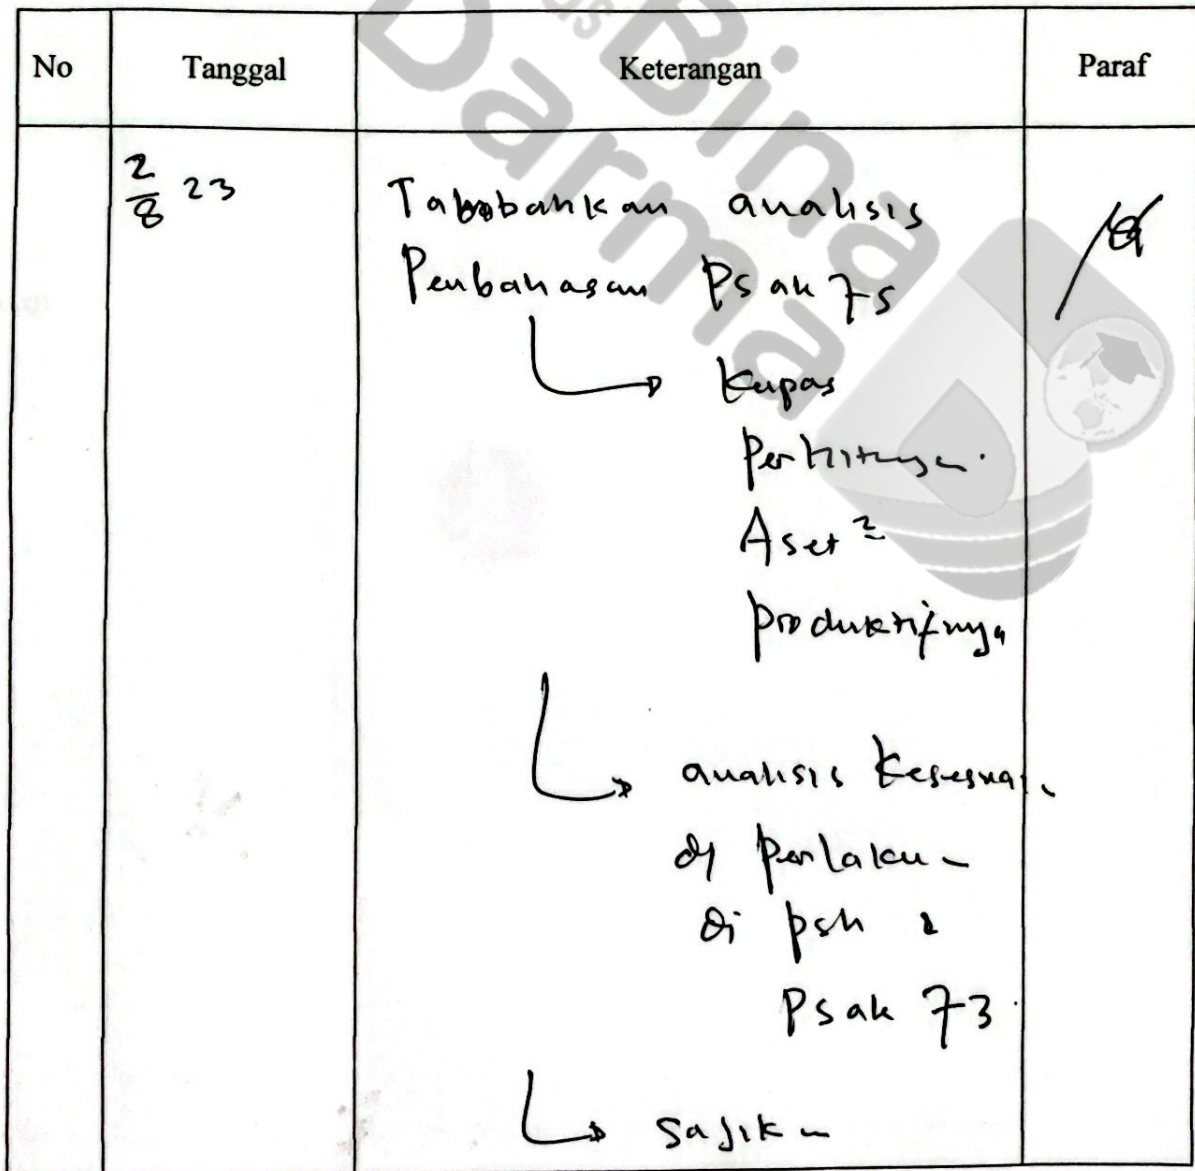 No Tanggal Keterangan Paraf
2/8 23
Tambahkan analisis
Pembahasan Psak 73
Kupas
Perhitungan
Aset²
produktifnya
analisis Kesesuaian
dg perlaku
di psh &
Psak 73
sajikan
us
Bina
Darma